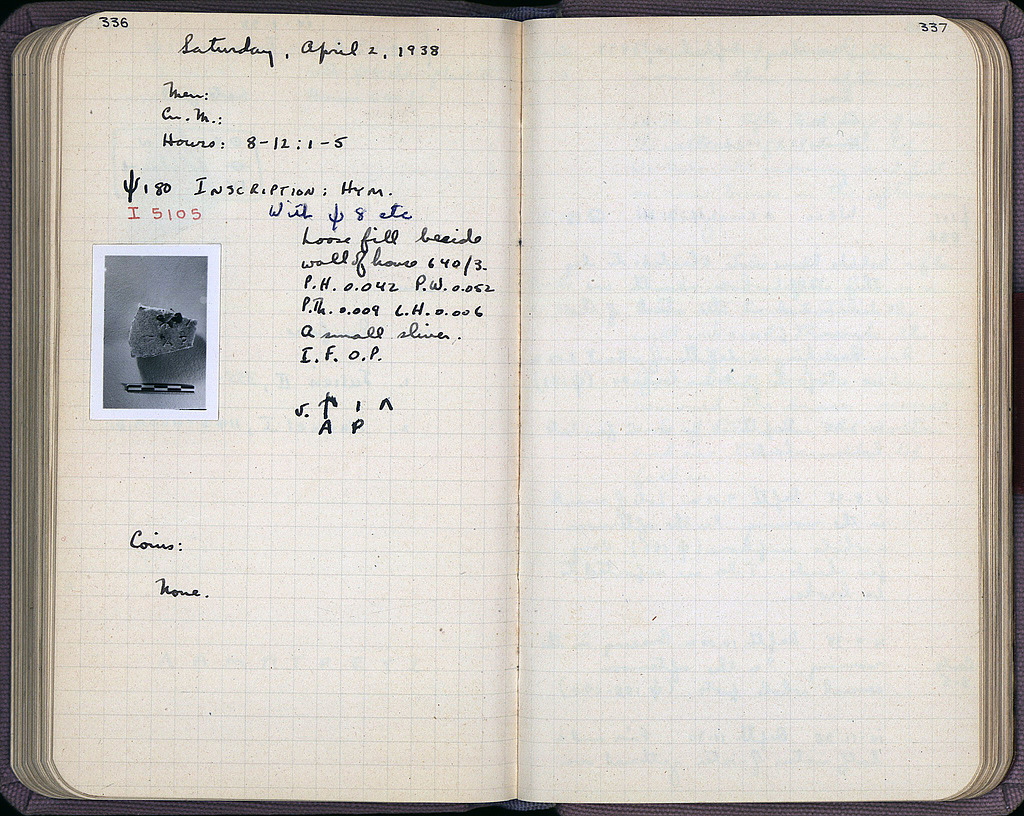 336
Saturday, April 2, 1938
Men:
Cu. M.:
Hours: 8-12: 1-5
ψ 180 INSCRIPTION: HYM.
I 5105 With ψ 8 etc
Loose fill beside
wall of house 640/3.
P.H. 0.042 P.W. 0.052
P.Th. 0.009 L.H. 0.006
A small sliver.
I. F. O.P.
v. Ι
Α Ρ
Coins:
None.
337